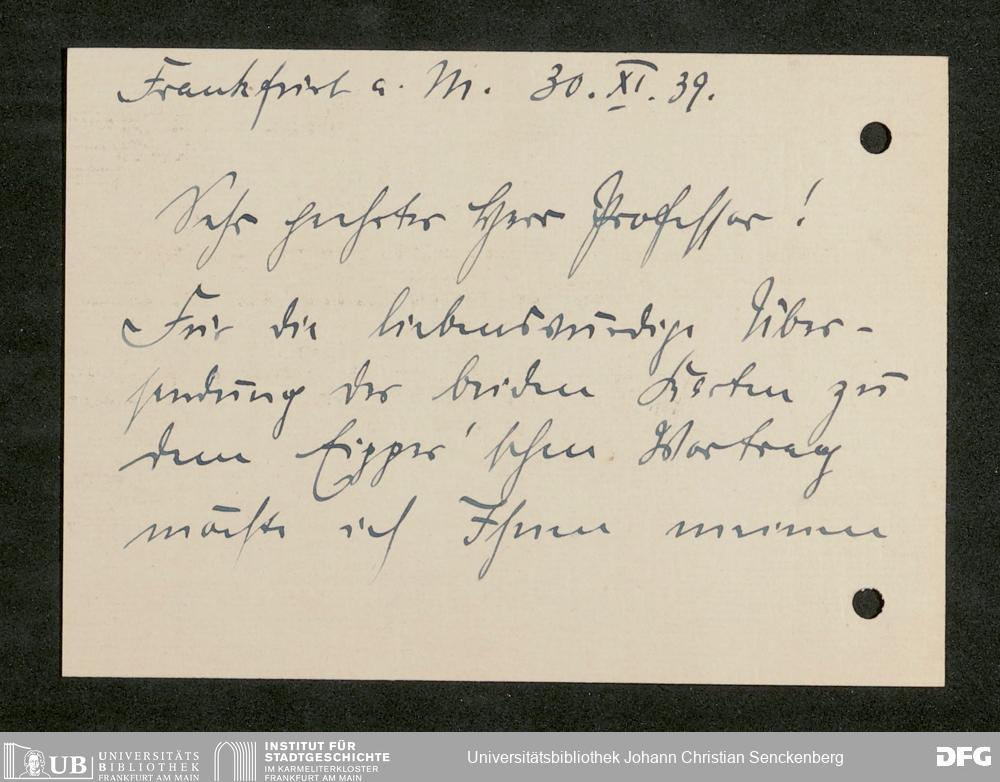 Frankfurt a. M. 30. XI. 39.
Sehr geehrter Herr Professor!
Für die liebenswürdige Über-
sendung der beiden Karten zu
dem Eipper'schen Vortrag
möchte ich Ihnen meinen
UB UNIVERSITÄTS
BIBLIOTHEK
FRANKFURT AM MAIN
INSTITUT FÜR
STADTGESCHICHTE
IM KARMELITERKLOSTER
FRANKFURT AM MAIN
Universitätsbibliothek Johann Christian Senckenberg
DFG